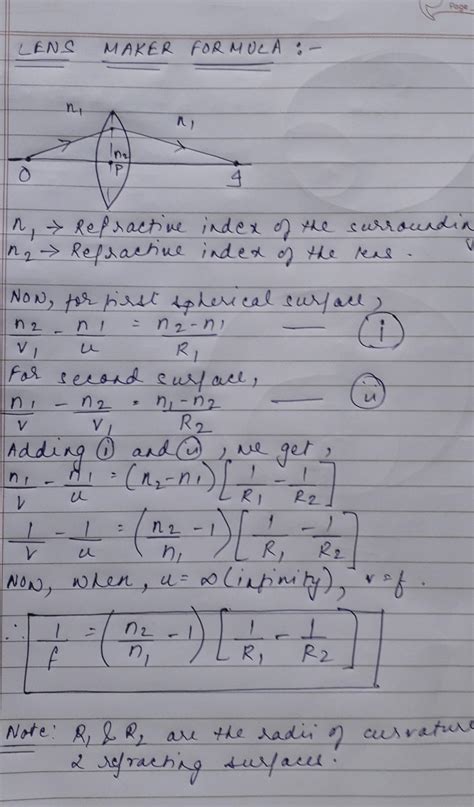 Page
LENS MAKER FORMULA :-
n1 n1
n2
O P I
n1 → Refractive index of the surroundin
n2 → Refractive index of the lens.
Now, for first spherical surface,
n2/v1 - n1/u = (n2-n1)/R1 — (i)
For second surface,
n1/v - n2/v1 = (n1-n2)/R2 — (ii)
Adding (i) and (ii), we get,
n1/v - n1/u = (n2-n1) [1/R1 - 1/R2]
1/v - 1/u = (n2/n1 - 1) [1/R1 - 1/R2]
Now, when, u = ∞ (infinity), v = f.
∴ 1/f = (n2/n1 - 1) [1/R1 - 1/R2]
Note: R1 & R2 are the radii of curvature
2 refracting surfaces.